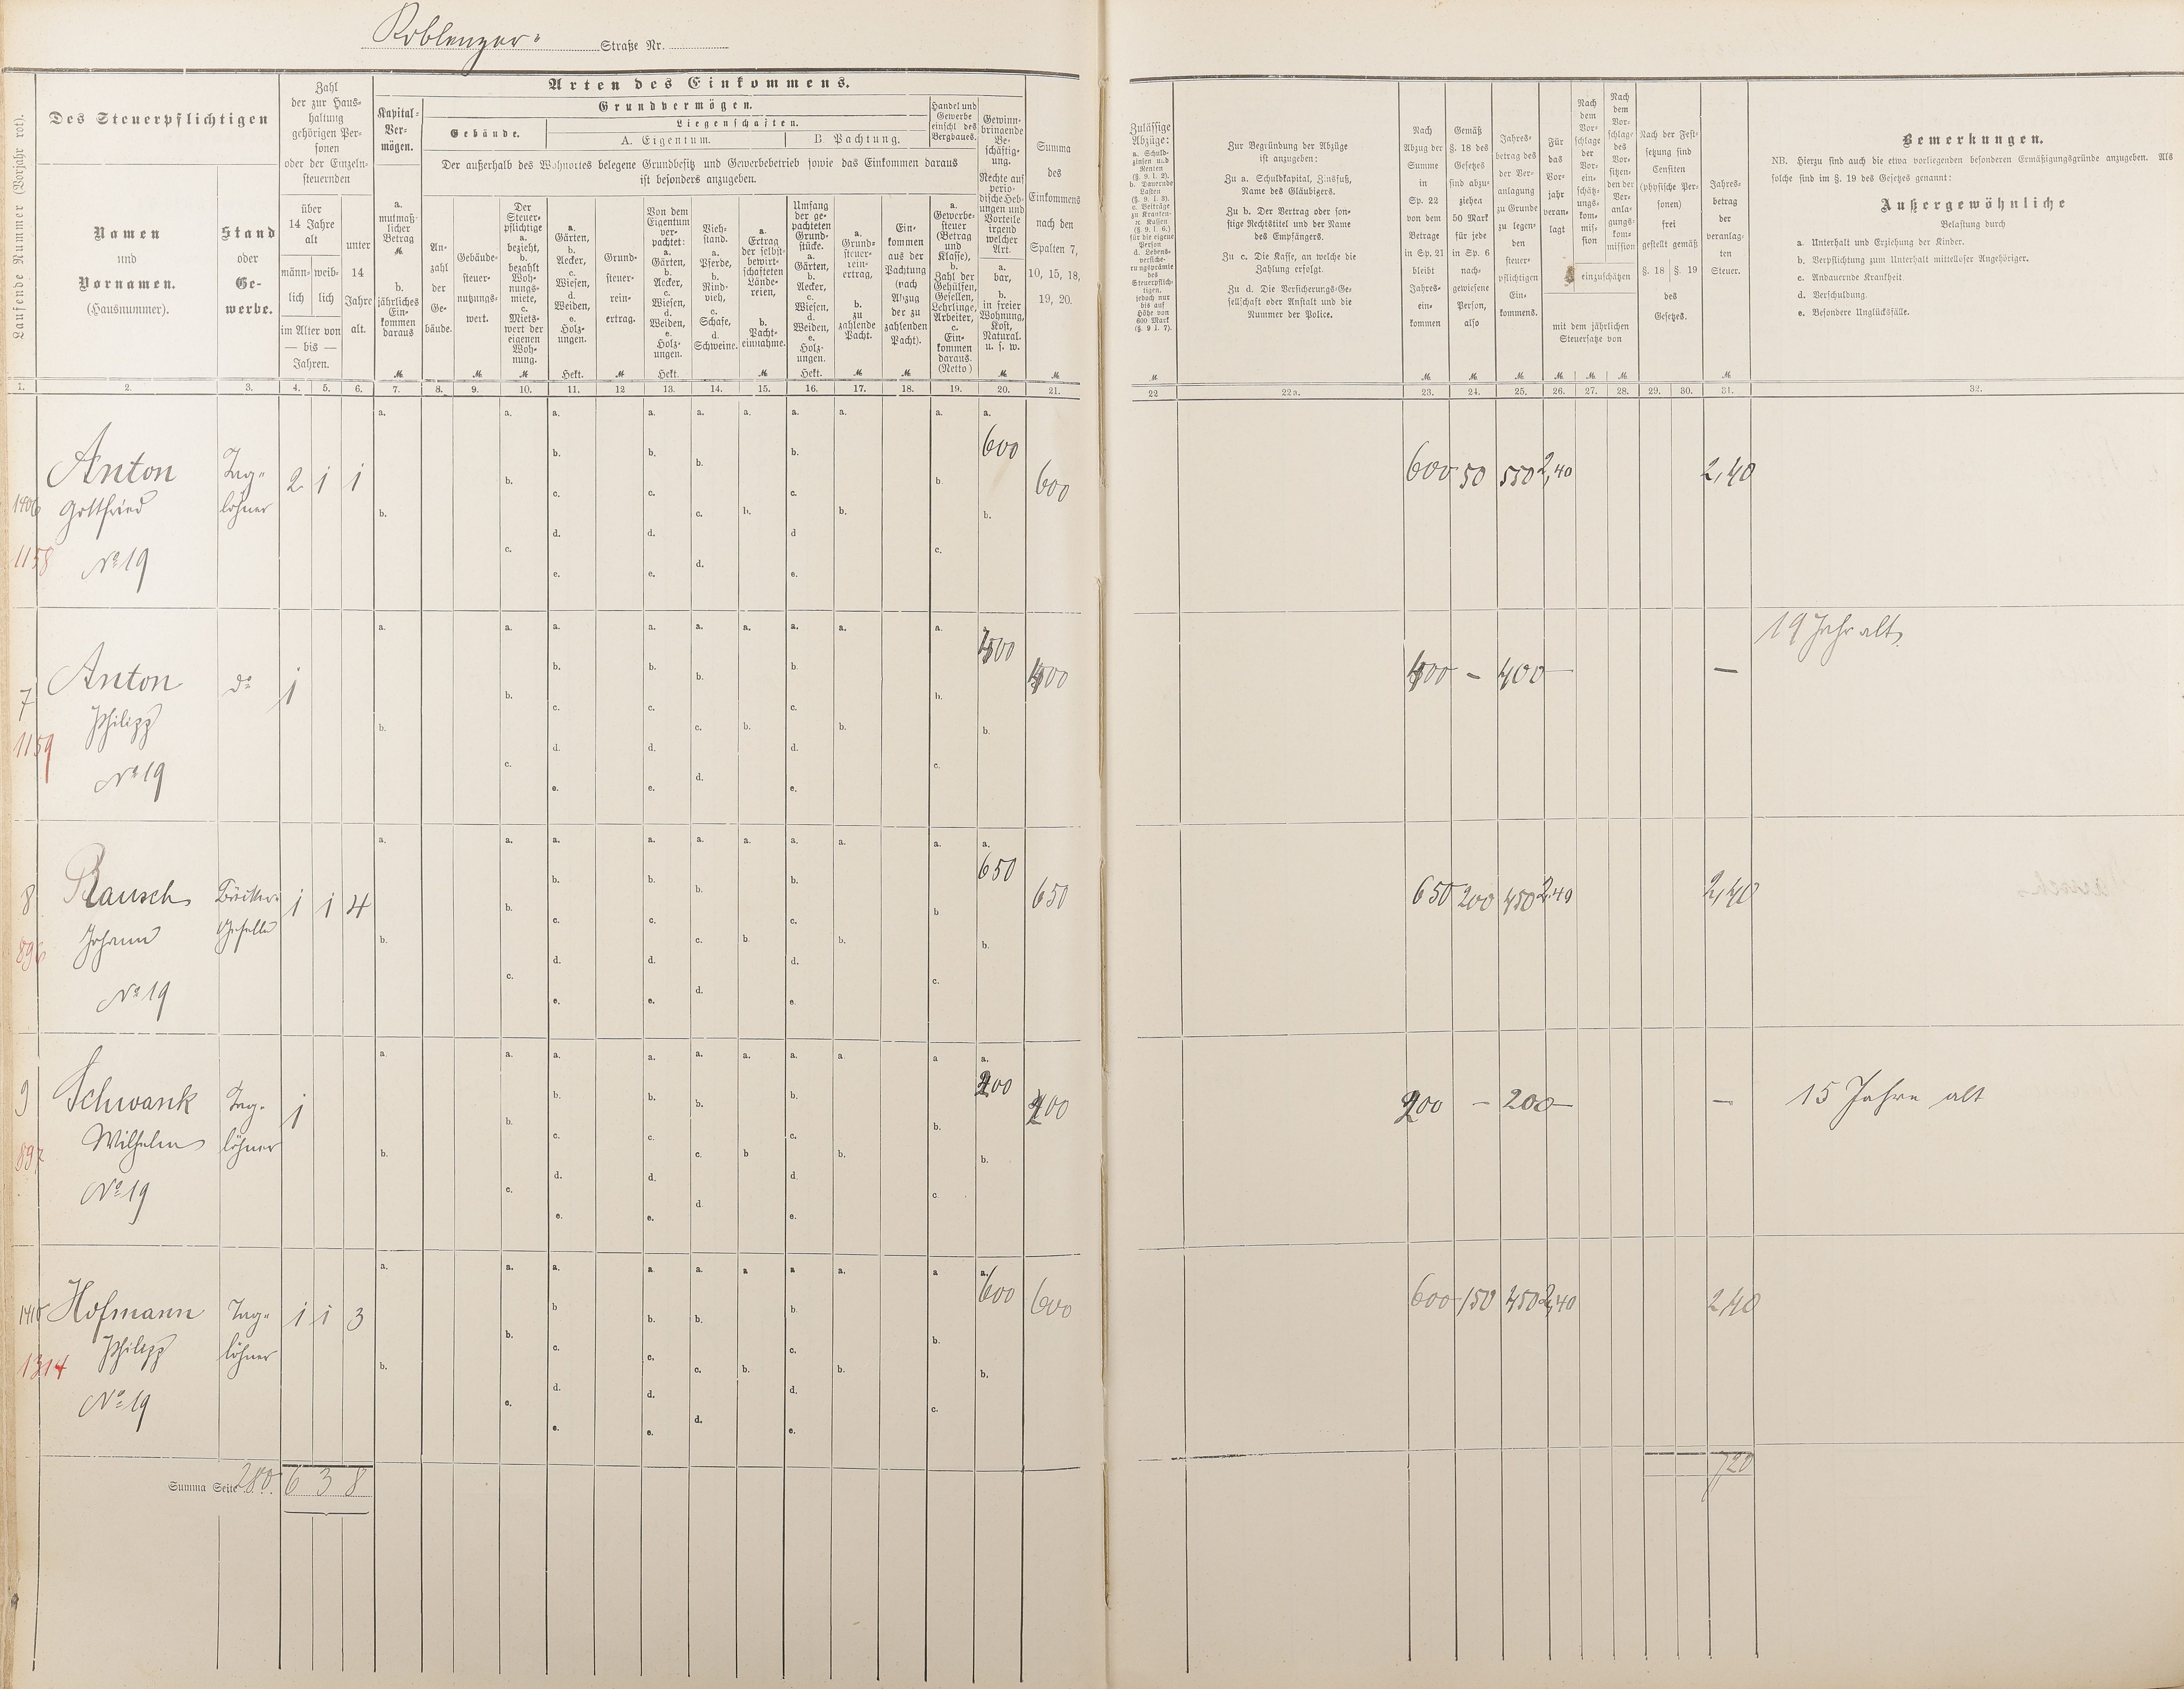 Koblenzer- Straße Nr.
Laufende Nummer (Vorjahr rot).
Des Steuerpflichtigen
Namen
und
Vornamen.
(Hausnummer).
Stand
oder
Ge-
werbe.
Zahl
der zur Haus-
haltung
gehörigen Per-
sonen
oder der Einzeln-
steuernden
über
14 Jahre
alt
männ- weib-
lich lich
im Alter von
— bis —
Jahren.
unter
14
Jahre
alt.
Arten des Einkommens.
Kapital-
Ver-
mögen.
a.
mutmaß-
licher
Betrag
M
b.
jährliches
Ein-
kommen
daraus
M
Grundvermögen.
Gebäude.
Liegenschaften.
A. Eigentum.
B Pachtung.
Der außerhalb des Wohnortes belegene Grundbesitz und Gewerbebetrieb sowie das Einkommen daraus
ist besonders anzugeben.
An-
zahl
der
Ge-
bäude.
Gebäude-
steuer-
nutzungs-
wert.
M
Der
Steuer-
pflichtige
a.
bezieht,
b.
bezahlt
Woh-
nungs-
miete,
c.
Miets-
wert der
eigenen
Woh-
nung.
M
a.
Gärten,
b.
Aecker,
c.
Wiesen,
d.
Weiden,
e.
Holz-
ungen.
Hekt.
Grund-
steuer-
rein-
ertrag.
M
Von dem
Eigentum
ver-
pachtet:
a.
Gärten,
b.
Aecker,
c.
Wiesen,
d.
Weiden,
e.
Holz-
ungen.
Hekt.
Vieh-
stand.
a.
Pferde,
b.
Rind-
vieh,
c.
Schafe,
d.
Schweine.
a.
Ertrag
der selbst-
bewirt-
schafteten
Lände-
reien,
b.
Pacht-
einnahme.
M
Umfang
der ge-
pachteten
Grund-
stücke.
a.
Gärten,
b.
Aecker,
c.
Wiesen,
d.
Weiden,
e.
Holz-
ungen.
Hekt.
a.
Grund-
steuer-
rein-
ertrag,
b.
zu
zahlende
Pacht.
M
Ein-
kommen
aus der
Pachtung
(nach
Abzug
der zu
zahlenden
Pacht).
M
Handel und
Gewerbe
einschl des
Bergbaues.
a.
Gewerbe-
steuer
(Betrag
und
Klasse),
b.
Zahl der
Gehülfen,
Gesellen,
Lehrlinge,
Arbeiter,
c.
Ein-
kommen
daraus.
(Netto)
Gewinn-
bringende
Be-
schäftig-
ung.
Rechte auf
perio-
dische Heb-
ungen und
Vorteile
irgend
welcher
Art.
a.
bar,
b.
in freier
Wohnung,
Kost,
Natural.
u. s. w.
M
Summa
des
Einkommens
nach den
Spalten 7,
10, 15, 18,
19, 20.
M
Zulässige
Abzüge:
a. Schuld-
zinsen und
Renten
(§. 9. I. 2).
b. Dauernde
Lasten
(§. 9. I. 3).
c. Beiträge
zu Kranken-
rc. Kassen
(§. 9. I. 6.)
für die eigene
Person
d. Lebens-
versiche-
rungsprämie
des
Steuerpflich-
tigen,
jedoch nur
bis auf
Höhe von
600 Mark
(§. 9 I. 7).
M
Zur Begründung der Abzüge
ist anzugeben:
Zu a. Schuldkapital, Zinsfuß,
Name des Gläubigers.
Zu b. Der Vertrag oder son-
stige Rechtstitel und der Name
des Empfängers.
Zu c. Die Kasse, an welche die
Zahlung erfolgt.
Zu d. Die Versicherungs-Ge-
sellschaft oder Anstalt und die
Nummer der Police.
Nach
Abzug der
Summe
in
Sp. 22
von dem
Betrage
in Sp. 21
bleibt
Jahres-
ein-
kommen
M
Gemäß
§. 18 des
Gesetzes
sind abzu-
ziehen
50 Mark
für jede
in Sp. 6
nach-
gewiesene
Person,
also
M
Jahres-
betrag des
der Ver-
anlagung
zu Grunde
zu legen-
den
steuer-
pflichtigen
Ein-
kommens.
M
Für
das
Vor-
jahr
veran-
lagt
M
Nach
dem
Vor-
schlage
der
Vor-
ein-
schätz-
ungs-
kom-
mis-
sion
M
Nach
dem
Vor-
schlage
des
Vor-
sitzen-
den der
Ver-
anla-
gungs-
kom-
mission
M
einzuschätzen
mit dem jährlichen
Steuersatze von
Nach der Fest-
setzung sind
Censiten
(physische Per-
sonen)
frei
gestellt gemäß
§. 18 §. 19
des
Gesetzes.
Jahres-
betrag
der
veranlag-
ten
Steuer.
M
Bemerkungen.
NB. Hierzu sind auch die etwa vorliegenden besonderen Ermäßigungsgründe anzugeben. Als
solche sind im §. 19 des Gesetzes genannt:
Außergewöhnliche
Belastung durch
a. Unterhalt und Erziehung der Kinder.
b. Verpflichtung zum Unterhalt mittelloser Angehöriger.
c. Andauernde Krankheit
d. Verschuldung.
e. Besondere Unglücksfälle.
1. 2. 3. 4. 5. 6. 7. 8. 9. 10. 11. 12 13. 14. 15. 16. 17. 18. 19. 20. 21. 22 22a. 23. 24. 25. 26. 27. 28. 29. 30. 31. 32.
1406 Anton Tag- 2 1 1 600 600 600 50 550 2,40 2,40
Gottfried löhner
1158 No 19
7 Anton do 1 400 400 400 – 400 — —
19 Jahr alt.
Philipp
1159
No 19
8 Rausch Bäcker- 1 1 4 650 650 650 200 450 2,40 2,40
Johann Geselle
896
No 19
9 Schwank Tag- 1 200 200 200 – 200 — — 15 Jahre alt
Wilhelm löhner
897
No 19
1410 Hofmann Tag- 1 1 3 600 600 600 150 450 2,40 2,40
Philipp löhner
1314
No 19
Summa Seite 280. 6 3 8 720